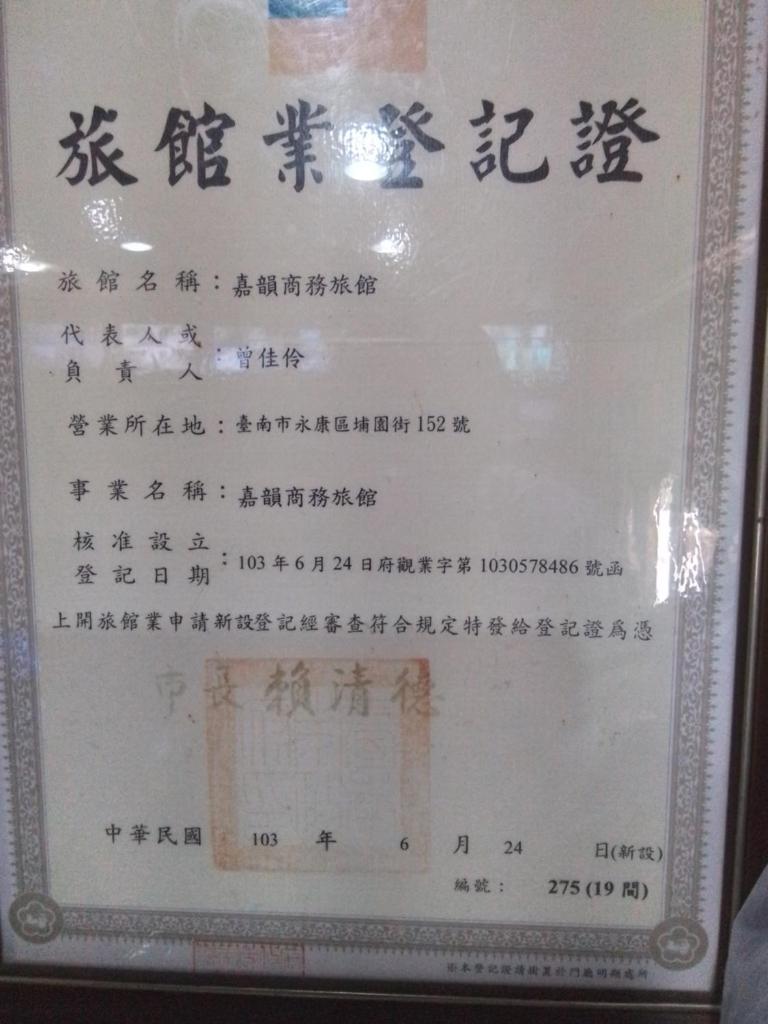 旅館業登記證
旅館名稱：嘉韻商務旅館
代表人或
負責人：曾佳伶
營業所在地：臺南市永康區埔園街152號
事業名稱：嘉韻商務旅館
核准設立
登記日期：103年6月24日府觀業字第1030578486號函
上開旅館業申請新設登記經審查符合規定特發給登記證為憑
市長賴清德
中華民國 103 年 6 月 24 日(新設)
編號： 275 (19 間)
※本登記證請掛置於門廳明顯處所